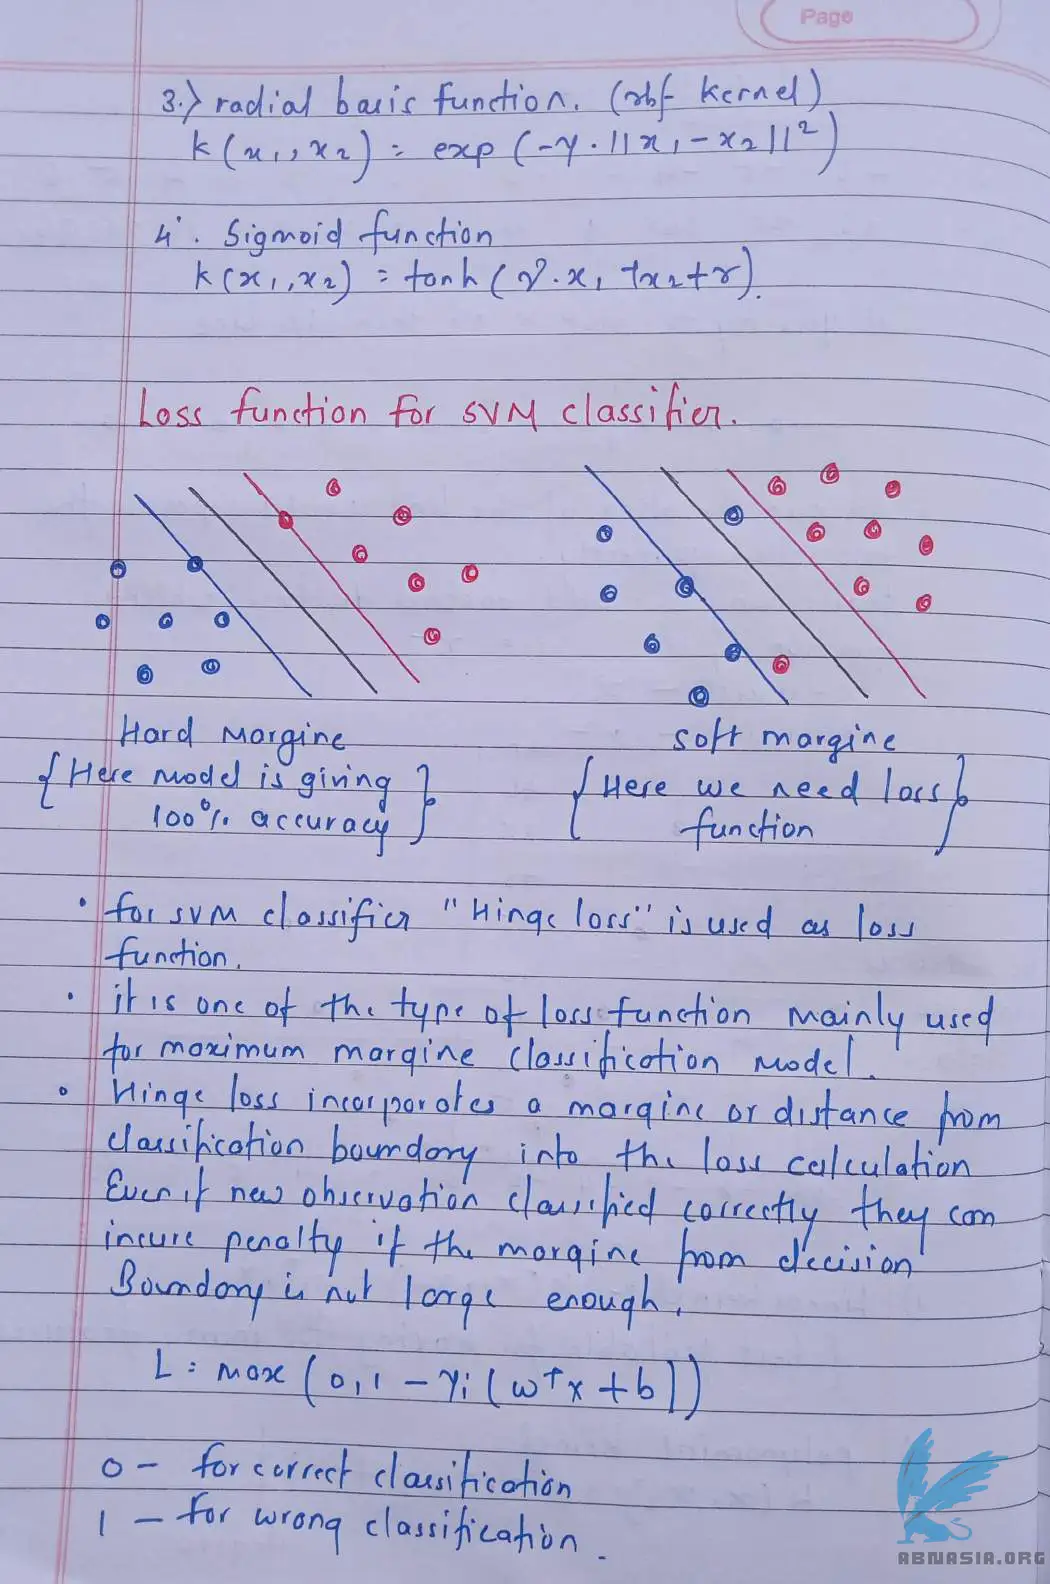 Page
3.) radial basis function. (rbf kernel)
k(x₁, x₂) = exp(-γ·||x₁ - x₂||²)
4. Sigmoid function
k(x₁, x₂) = tanh(γ·x₁ᵀx₂+r).
Loss function for SVM classifier.
Hard Margine
{Here model is giving
100% accuracy}
soft margine
{Here we need loss
function}
• for SVM classifier "Hinge loss" is used as loss
function.
• it is one of the type of loss function mainly used
for maximum margine classification model.
• Hinge loss incorporates a margine or distance from
classification boundary into the loss calculation
Even if new observation classified correctly they can
incure penalty if the margine from decision
Boundary is not large enough.
L = max(0, 1 - yᵢ(wᵀx + b))
0 - for correct classification
1 - for wrong classification.
ABNASIA.ORG